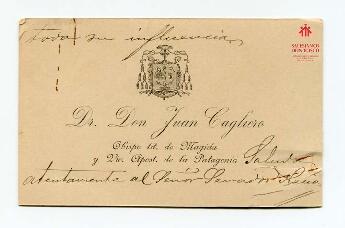 toda su influencia
SALESIANOS
DON BOSCO
Dr. Don Juan Cagliero
Obispo tit. de Magida
y Vic. Apost. de la Patagonia Saluda
atentamente al Señor Senador